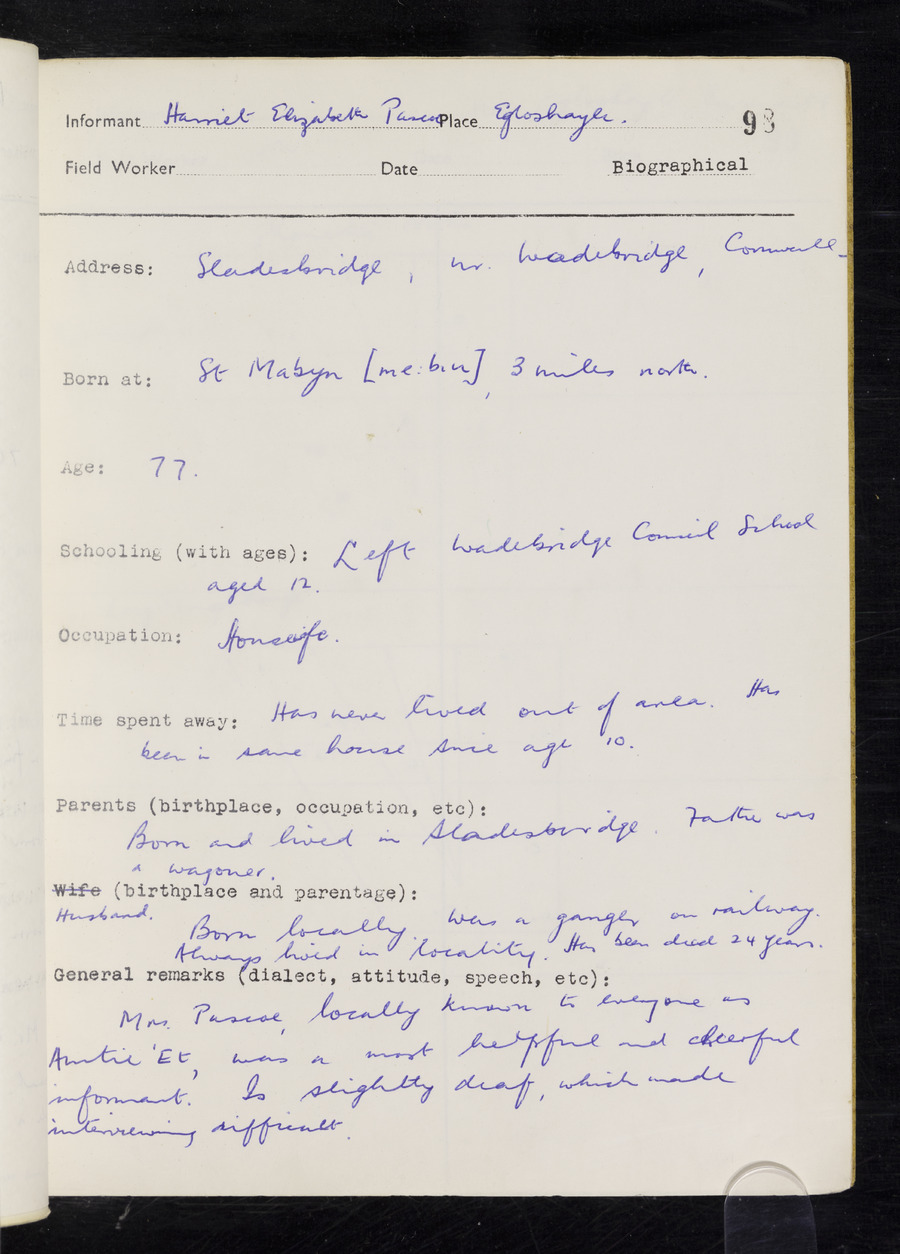 Informant Harriet Elizabeth Pascoe Place Egloshayle. 98
Field Worker Date Biographical
Address: Sladesbridge, nr. Wadebridge, Cornwall
Born at: St Mabyn [me:bın], 3 miles north.
Age: 77.
Schooling (with ages): Left Wadebridge Council School
aged 12.
Occupation: Housewife.
Time spent away: Has never lived out of area. Has
been in same house since age 10.
Parents (birthplace, occupation, etc):
Born and lived in Sladesbridge. Father was
a wagoner.
Wife (birthplace and parentage):
Husband. Born locally. Was a ganger on railway.
Always lived in locality. Has been dead 24 years.
General remarks (dialect, attitude, speech, etc):
Mrs. Pascoe, locally known to everyone as
Auntie 'Et, was a most helpful and cheerful
informant. Is slightly deaf, which made
interviewing difficult.